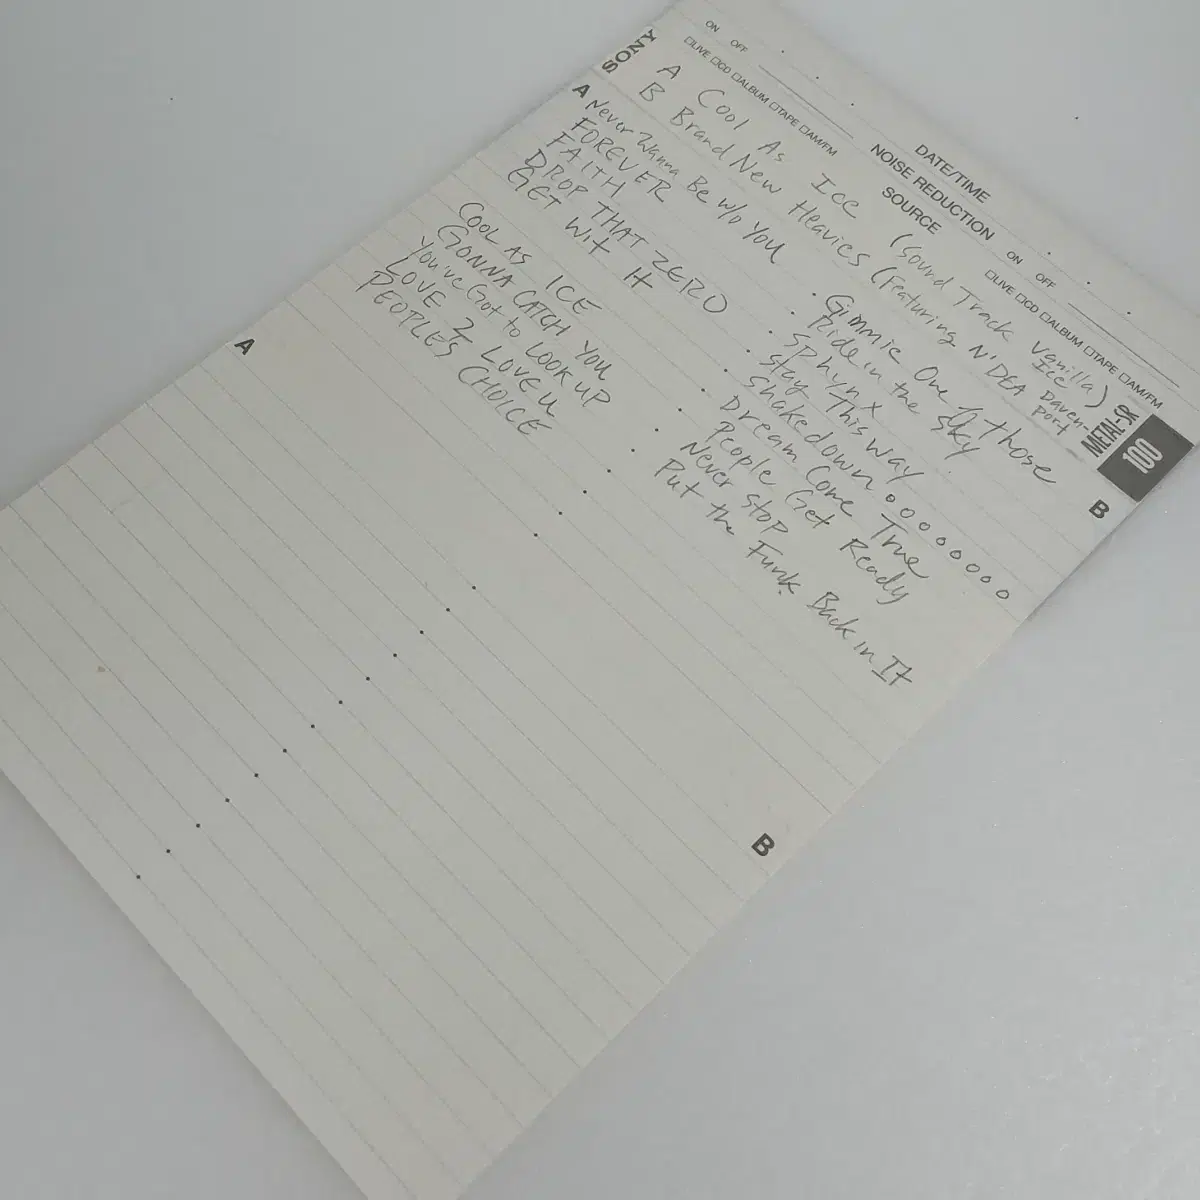 DATE/TIME
ON OFF NOISE REDUCTION ON OFF
□LIVE □CD □ALBUM □TAPE □AM/FM SOURCE □LIVE □CD □ALBUM □TAPE □AM/FM
SONY
A Cool As Ice (Sound Track Vanilla Ice)
B Brand New Heavies (Featuring N'DEA Davenport
METAL-SR 100
A
Never Wanna Be w/o You
FOREVER
FAITH
DROP THAT ZERO
GET Wit It
COOL AS ICE
GONNA CATCH YOU
You've Got to Look up
LOVE 2 LOVE U
PEOPLE'S CHOICE
B
Gimmie One of those
Ride in the Sky
Sphynx
Stay This way
Shakedown
Dream Come True
People Get Ready
Never Stop
Put the Funk Back in It
A
B